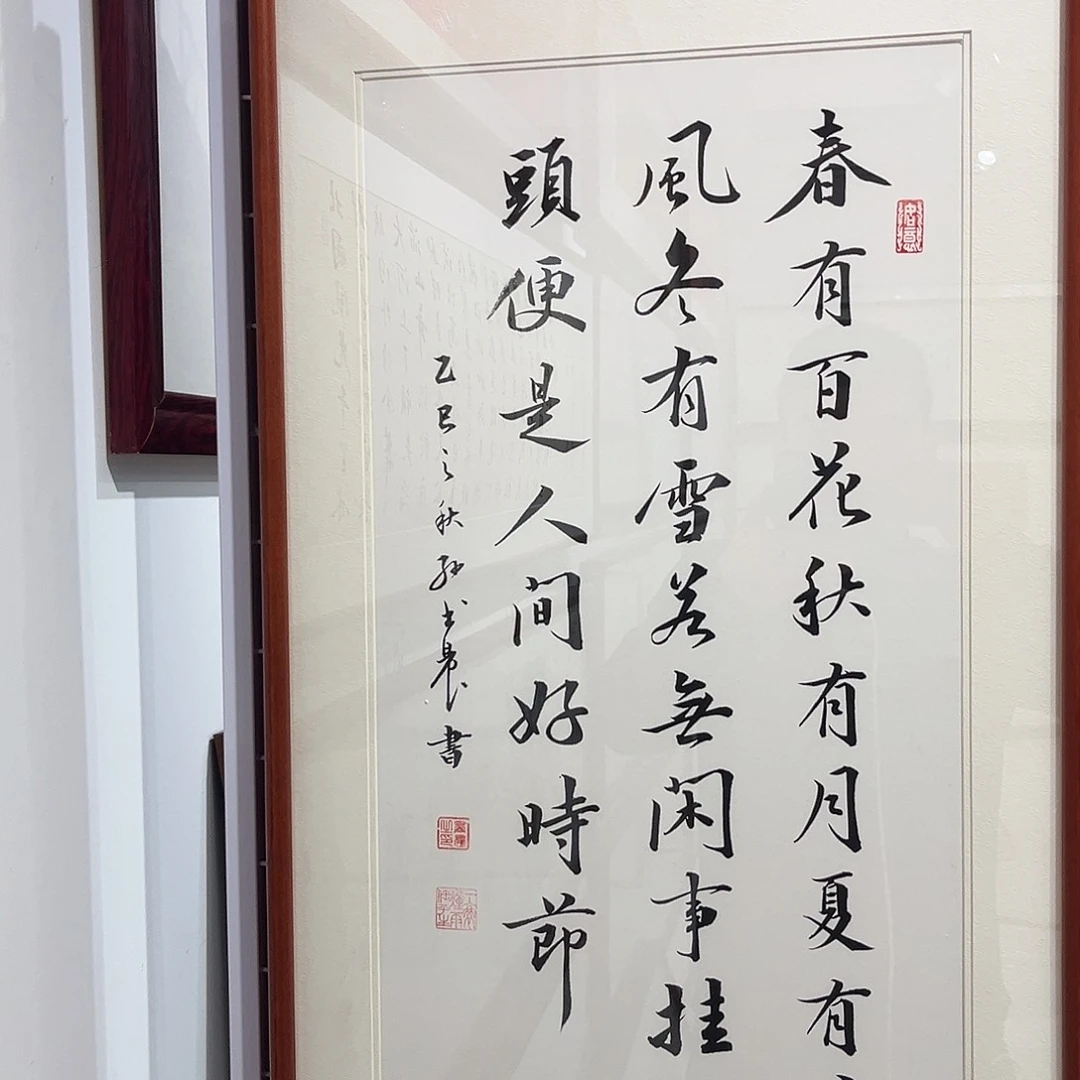 春有百花秋有月夏有
風冬有雪若無閑事挂
頭便是人間好時節
乙巳之秋孫士晨書